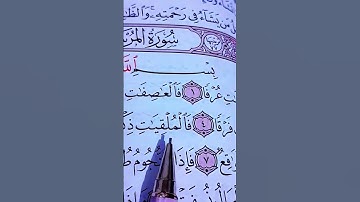 من يشاء في رحمته ۚ والظ
سُورَةُ المُر
بِسْمِ ٱللَّ
تِ عُرْفًا ١ فَٱلْعَٰصِفَٰتِ
فَرْقًا ٤ فَٱلْمُلْقِيَٰتِ ذِكْ
قِعٌ ٧ فَإِذَا ٱلنُّجُومُ طُ